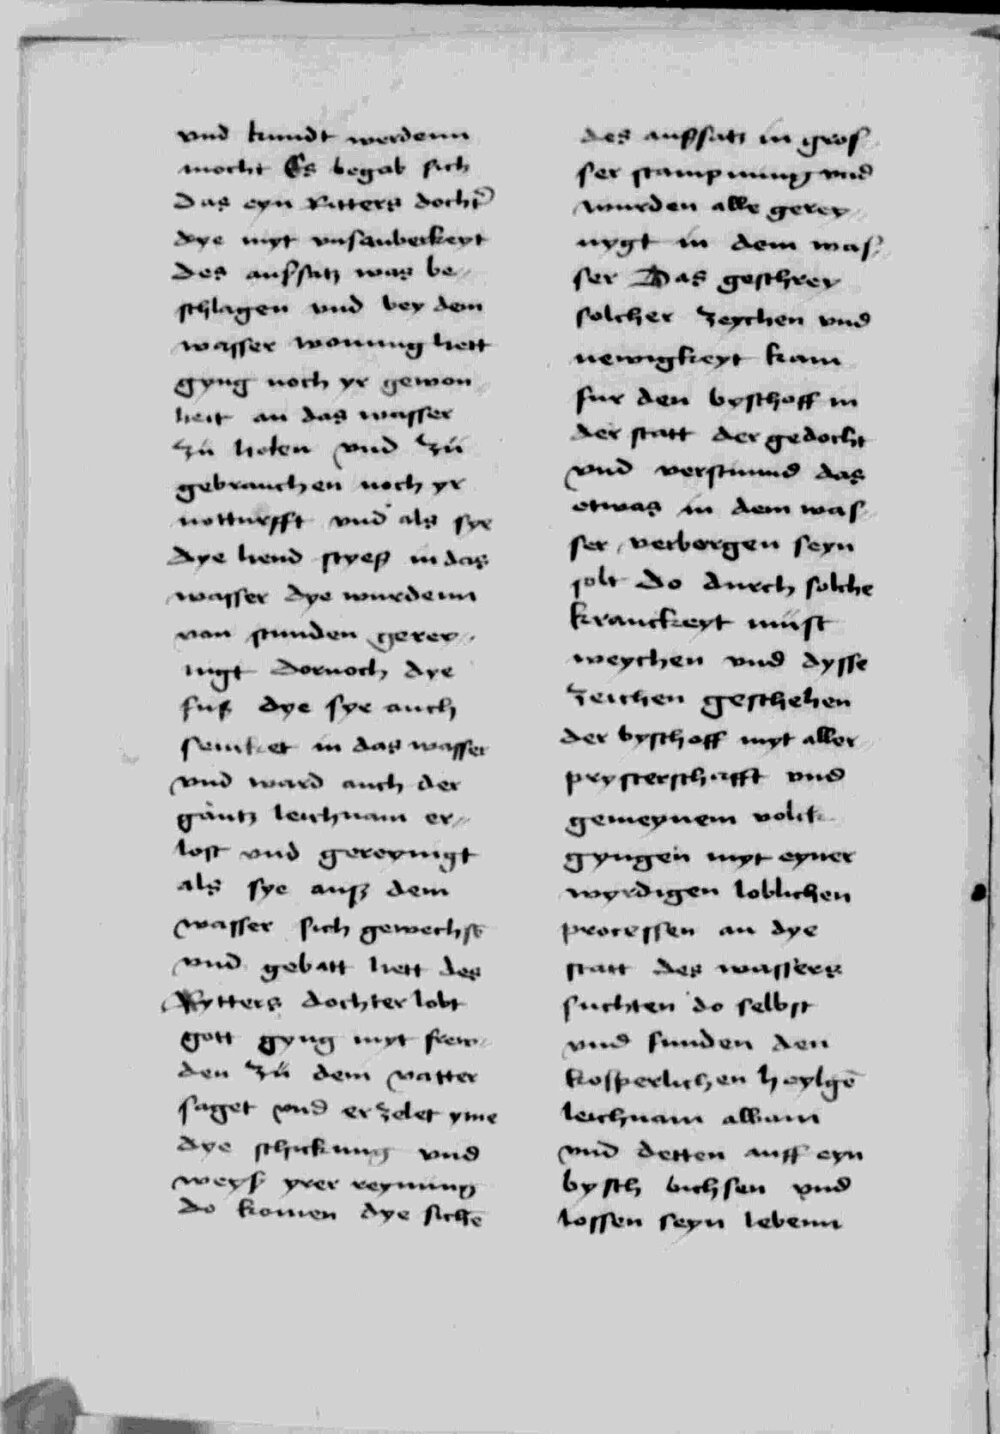 vnd kundt werdenn
mocht Es begab sich
Das eyn Ritters docht̄
dye myt vnsauberkeyt
des aufsatz was be„
schlagen vnd bey dem
wasser wonung hett
gyng noch yr gewon
heit an das wasser
zů holen vnd zů
gebrauchen noch yr
notturfft vnd als sye
dye hend styeß in das
wasser dye wurdenn
van stunden gerey„
nigt dornoch dye
fuß dye sye auch
sencket in das wasser
vnd ward auch der
gantz leichnam er„
lost vnd gereynigt
als sye auß dem
wasser sich gewechst
vnd gebatt hett des
Rytters dochter lobt
gott gyng myt frew„
den zů dem vatter
saget vnd erzelet yme
dye schickung vnd
weyß yrer reynung
do komen dye sichē
des aufsatz in gros„
ser stampnung vnd
wurden alle gerey„
nygt in dem was„
ser Das geschrey
solcher zeychen vnd
newigkeyt kam
fur den byschoff in
der statt der gedocht
vnd verstund das
etwas in dem was„
ser verborgen seyn
solt do durch solche
kranckeyt must
weychen vnd dysse
zeichen geschehen
der byschoff myt aller„
prysterschafft vnd
gemeynem volck
gyngen myt eyner
wyrdigen loblichen
processen an dye
statt des wassers
suchten do selbst
vnd funden den
kosperlichen heylgē
leichnam albani
vnd detten auff eyn
bysch buchsen vnd
lossen seyn lebenn